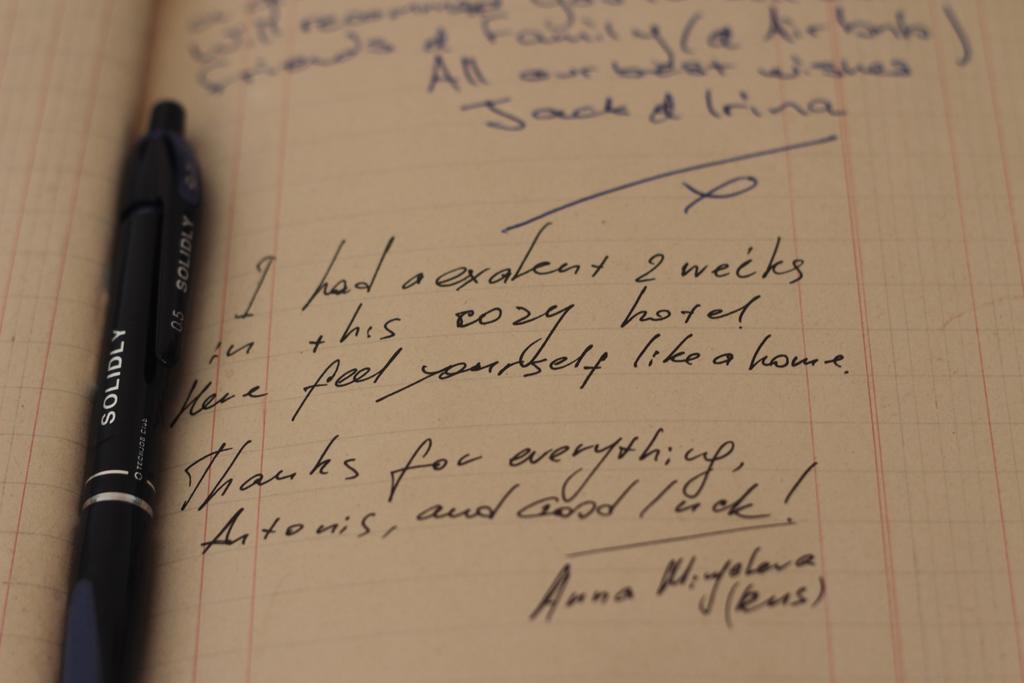 will recommend you to
friends & Family (& Airbnb)
All our best wishes
Jack & Irina
I had a exalent 2 weeks
in this cozy hotel
Here feel yourself like a home.
Thanks for everything,
Antonis, and Good luck!
Anna
(Rus)
SOLIDLY
0.5 SOLIDLY
0.7